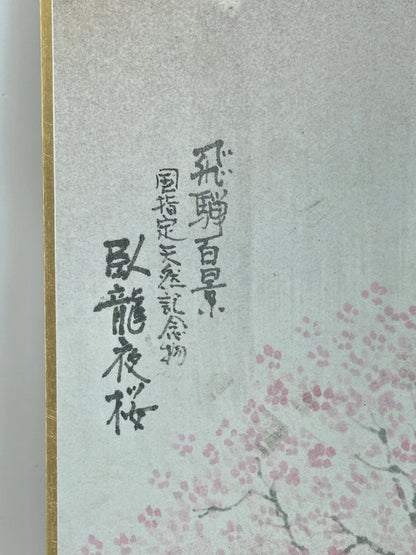 飛騨百景
国指定天然記念物
臥龍夜桜